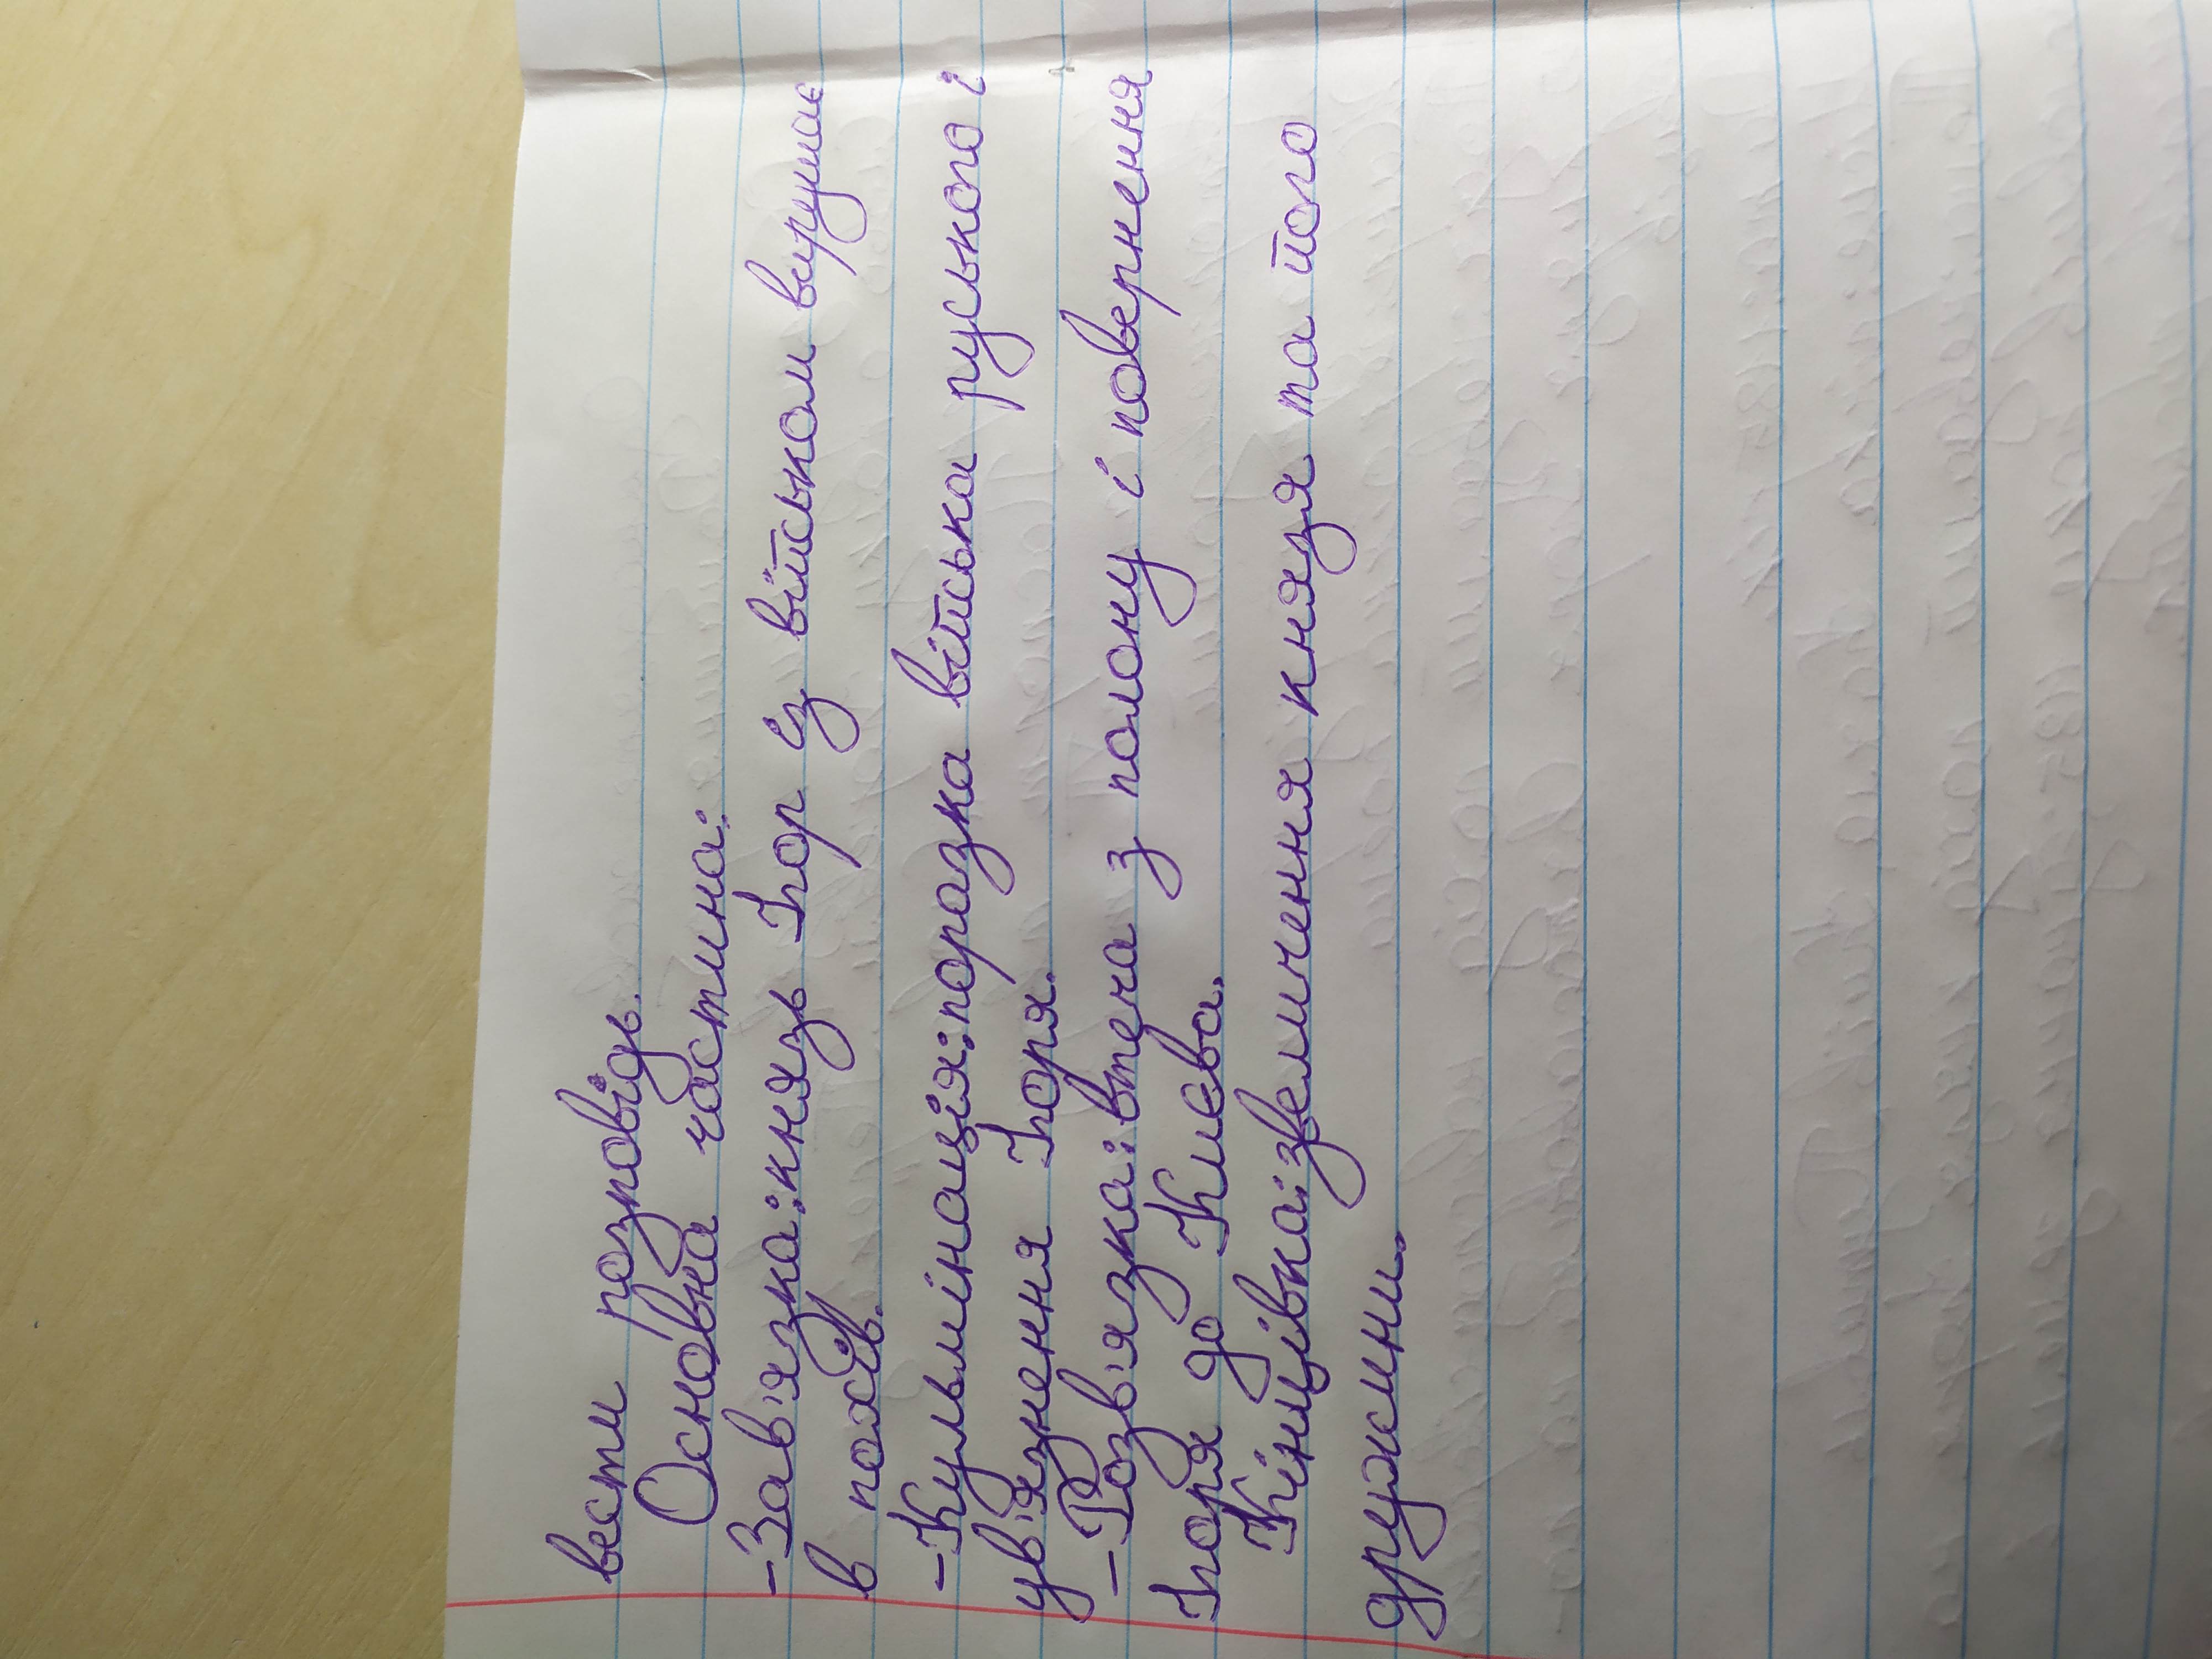 вести розповідь.
Основна частина:
-Зав'язка: князь Ігор із військом вирушає
в похід.
-Кульмінація: поразка війська руського і
ув'язнення Ігоря.
-Розв'язка: втеча з полону і повернення
Ігоря до Києва.
Кінцівка: звеличення князя та його
дружини.